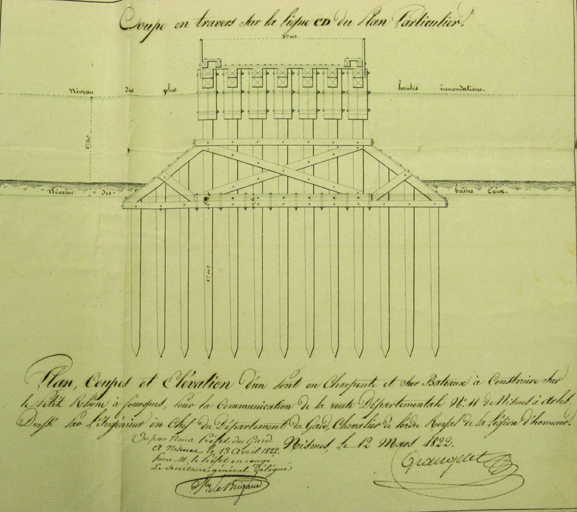 Coupe en travers sur la ligne CD du Plan Particulier.
Niveau des plus hautes inondations.
Niveau des basses Eaux.
Plan, Coupes et Elevation d'un Pont en Charpente et sur Bateaux à Construire sur
le Petit Rhône à fourques, pour la Communication de la route Départementale N.º 11 de Nismes à Arles.
Dressé par l'Ingénieur en Chef du Département du Gard, Chevalier de l'ordre Royal de la Légion d'honneur.
Nismes, Le 12 Mars 1822.
Vu par Nous Préfet du Gard
A Nismes, le 13 Avril 1822.
Pour M. le Préfet en congé
Le Secrétaire général Délégué
Grangent